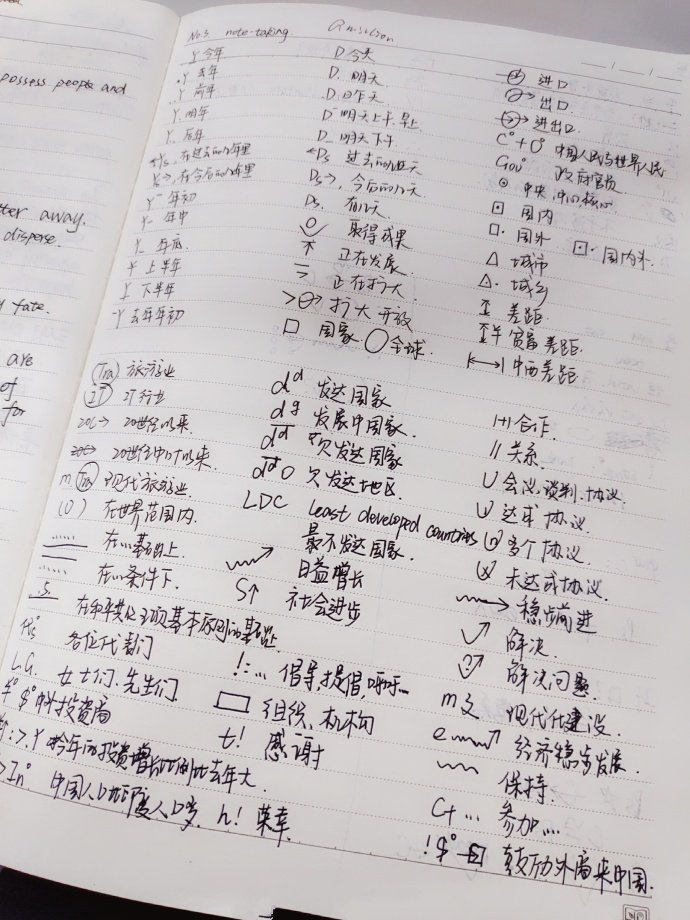 possess people and
tter away.
disperse.
y fate.
are
of
for
No.3 note-taking
Y 今年
.Y 去年
..Y 前年
Y. 明年
Y.. 后年
在过去的几年里
在今后的几年里
年初
Y- 年中
年底
上半年
下半年
去年年初
D 今天
D. 明天
.D 昨天
明天上午、早上
明天下午
←Ds 过去的几天
Ds→, 今后的几天
Ds. 有几天
取得成果
正在发展
正在扩大
扩大开放
□ 国家 ○ 全球
进口
出口
进出口
C°+O° 中国人民与世界人民
Gov° 政府官员
⊙ 中央,中心,核心
⊡ 国内
□· 国外 国内外
△ 城市
△· 城乡
差距
贫富差距
中西差距
(Tra) 旅游业
(IT) IT行业
20C→ 20世纪以来
20世纪中叶以来
m (Tra) 现代旅游业
(O) 在世界范围内
在…基础上
在…条件下
在和平共处五项基本原则的基础上
各位代表们
L.G. 女士们、先生们
¥° $° 中外投资商
中国人口比印度人口多
h! 荣幸
发达国家
发展中国家
欠发达国家
欠发达地区
LDC Least developed countries
最不发达国家
日益增长
S↑ 社会进步
!:... 倡导,提倡,呼吁...
组织、机构
t! 感谢
合作
// 关系
U 会议,谈判,协议
达成协议
多个协议
未达成协议
稳步前进
解决
解决问题
现代化建设
经济稳步发展
保持
C+... 参加...
鼓励外商来中国